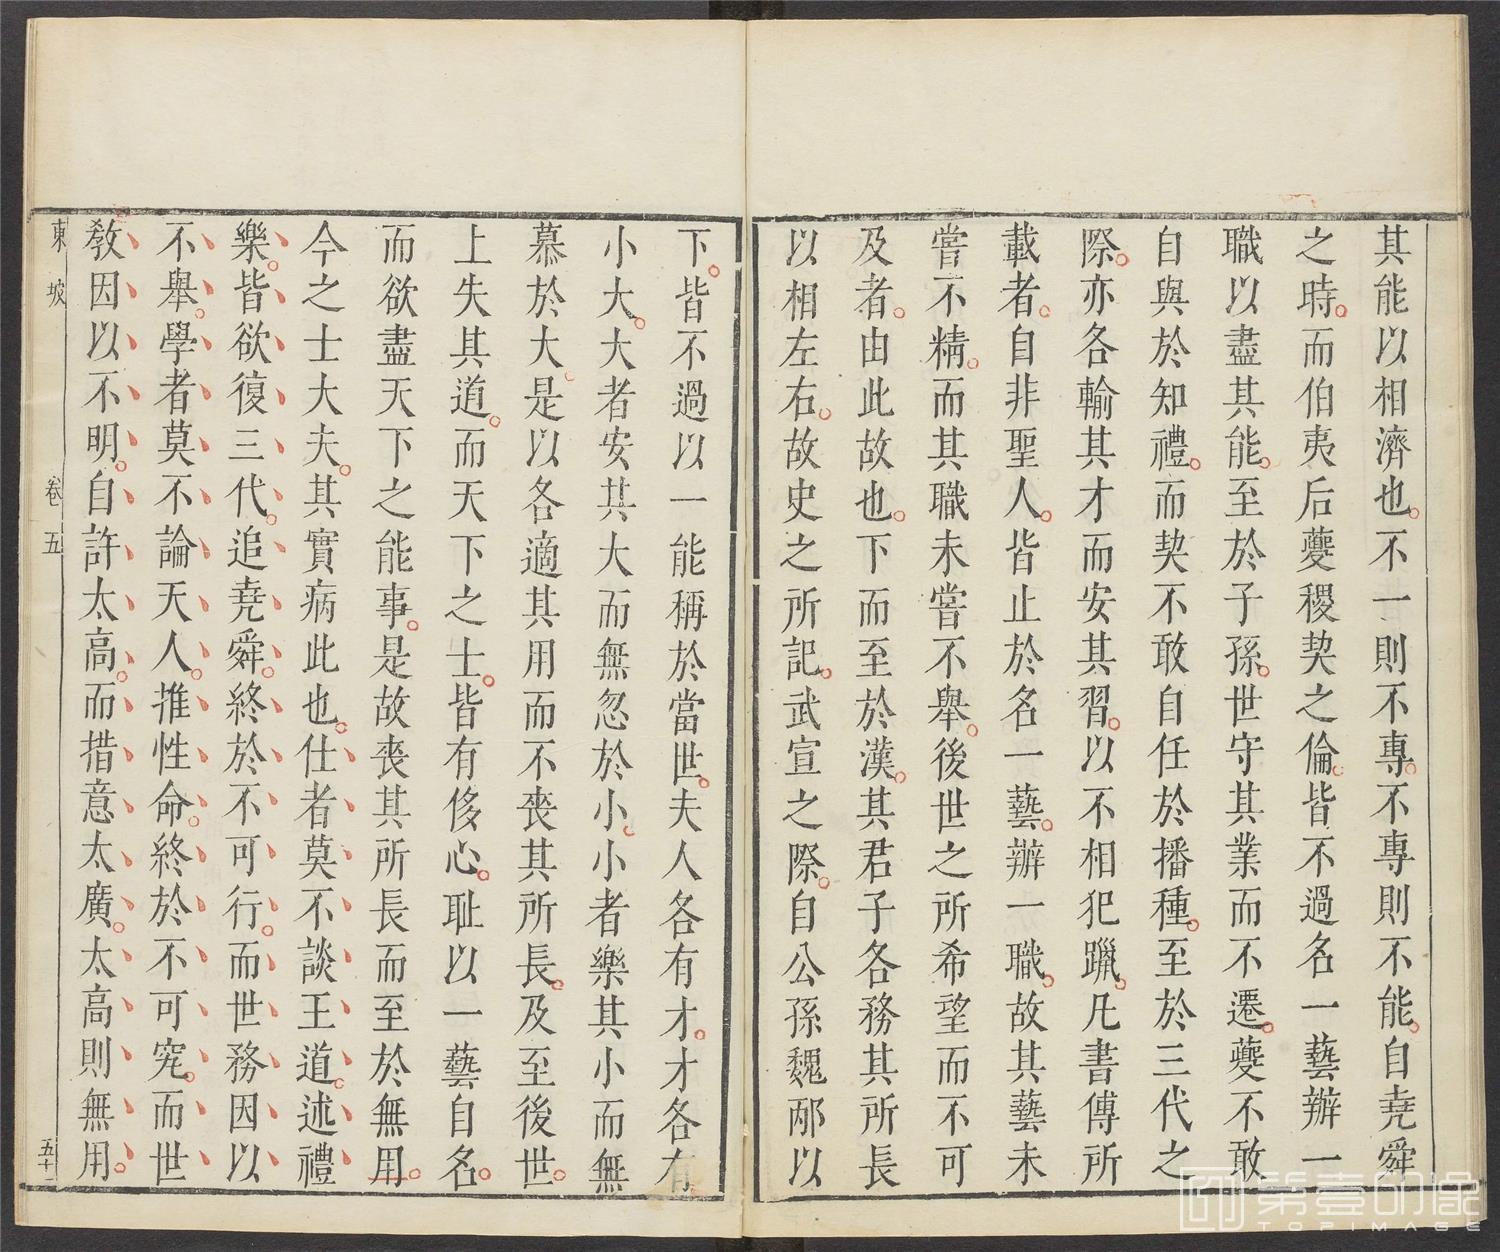 其能以相濟也不一則不專不專則不能自堯舜
之時而伯夷后夔稷契之倫皆不過名一藝辦一
職以盡其能至於子孫世守其業而不遷夔不敢
自與於知禮而契不敢自任於播種至於三代之
際亦各輸其才而安其習以不相犯躐凡書傳所
載者自非聖人皆止於名一藝辦一職故其藝未
嘗不精而其職未嘗不舉後世之所希望而不可
及者由此故也下而至於漢其君子各務其所長
以相左右故史之所記武宣之際自公孫魏邴以
下皆不過以一能稱於當世夫人各有才才各有
小大大者安其大而無忽於小小者樂其小而無
慕於大是以各適其用而不喪其所長及至後世
上失其道而天下之士皆有侈心耻以一藝自名
而欲盡天下之能事是故喪其所長而至於無用
今之士大夫其實病此也仕者莫不談王道述禮
樂皆欲復三代追堯舜終於不可行而世務因以
不舉學者莫不論天人推性命終於不可究而世
教因以不明自許太高而措意太廣太高則無用
東坡 卷五 五十一
第壹印像
TOPIMAGE